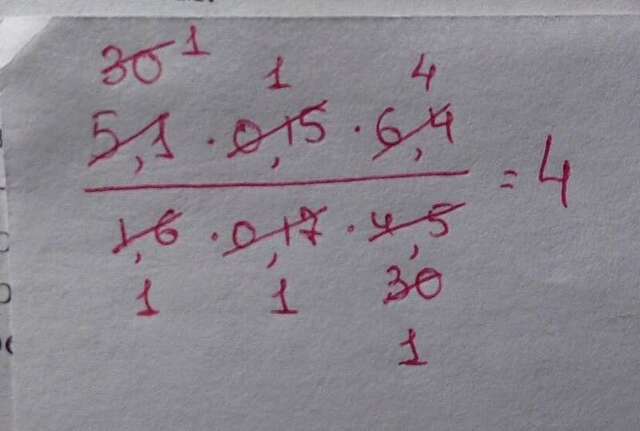 30 1
1 4
5,1 · 0,15 · 6,4
= 4
1,6 · 0,17 · 4,5
1 1 30
1